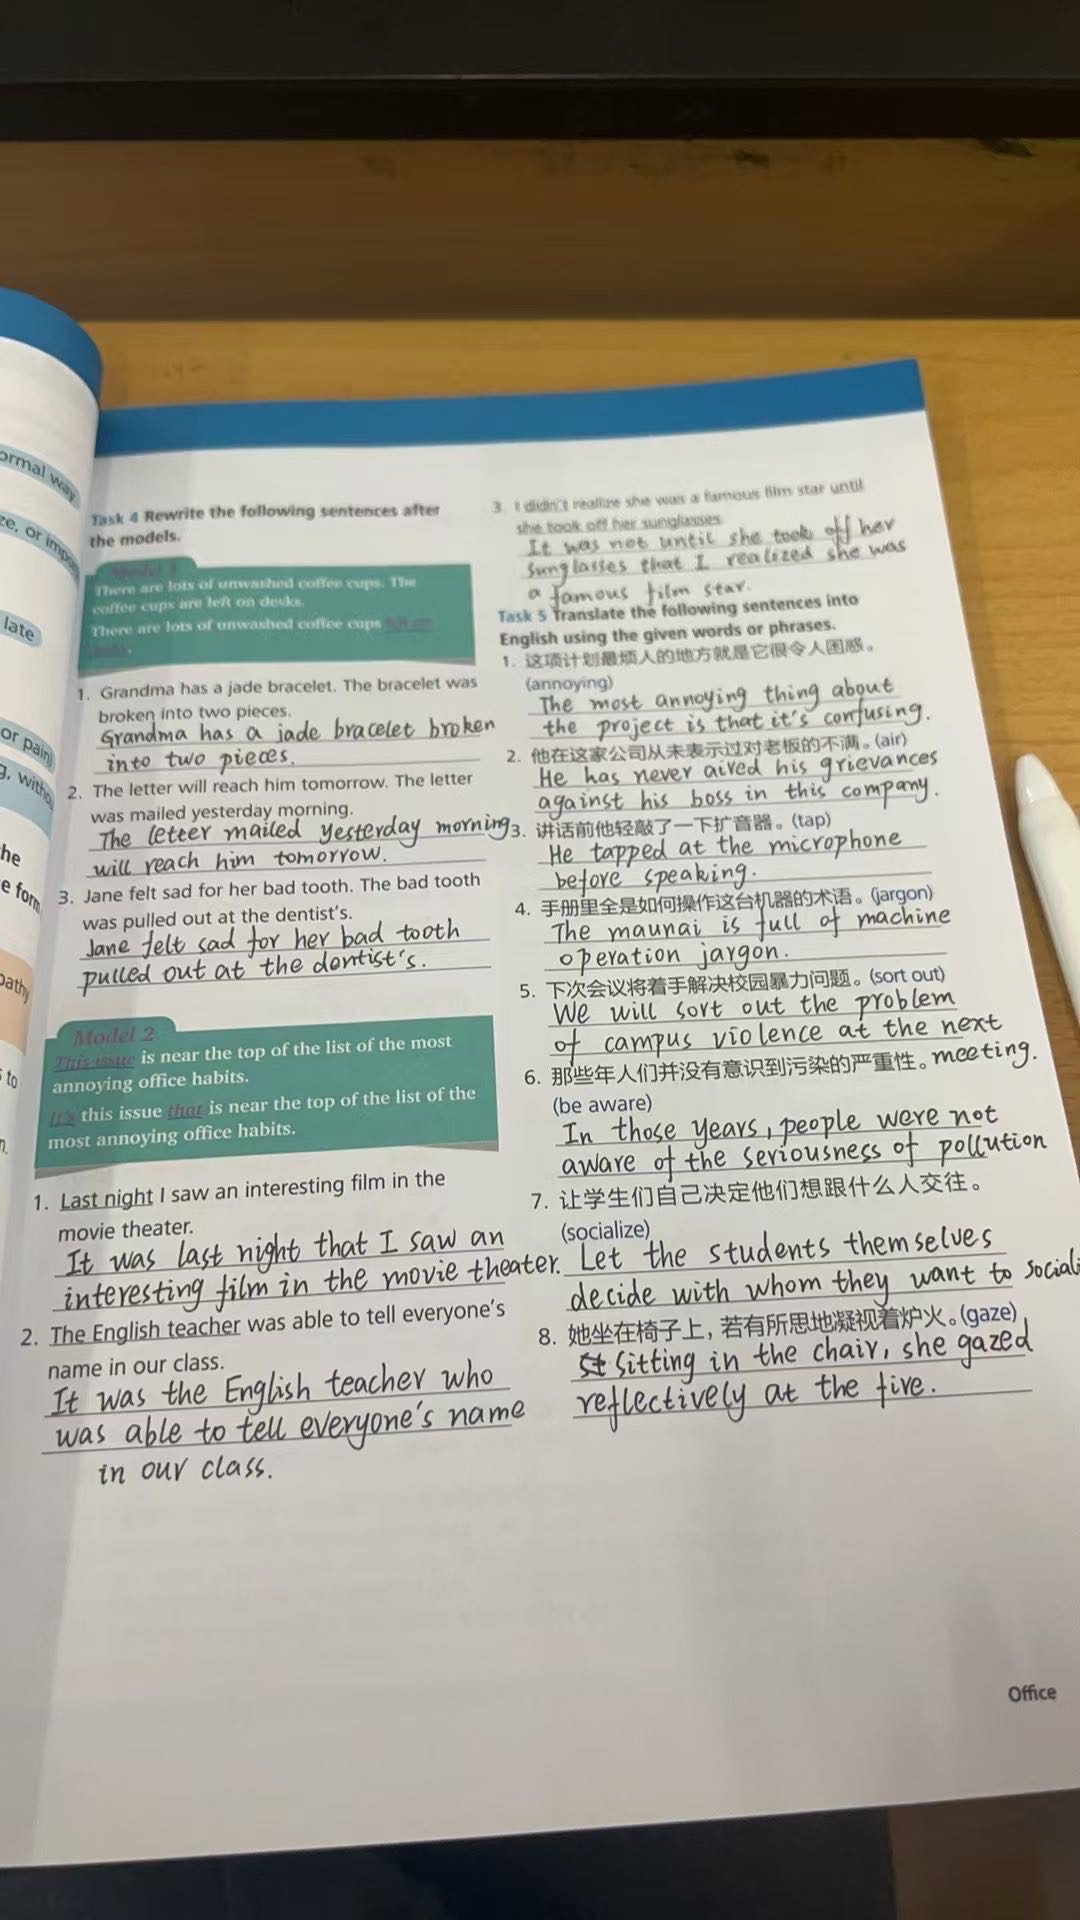 ormal way
ze, or impo
late
or pain
g, witho
he
e form
pathy
s to
n.
Task 4 Rewrite the following sentences after
the models.
There are lots of unwashed coffee cups. The
coffee cups are left on desks.
There are lots of unwashed coffee cups
1. Grandma has a jade bracelet. The bracelet was
broken into two pieces.
Grandma has a jade bracelet broken
into two pieces.
2. The letter will reach him tomorrow. The letter
was mailed yesterday morning.
The letter mailed yesterday morning
will reach him tomorrow.
3. Jane felt sad for her bad tooth. The bad tooth
was pulled out at the dentist's.
Jane felt sad for her bad tooth
pulled out at the dentist's.
Model 2
This issue is near the top of the list of the most
annoying office habits.
It's this issue that is near the top of the list of the
most annoying office habits.
1. Last night I saw an interesting film in the
movie theater.
It was last night that I saw an
interesting film in the movie theater.
2. The English teacher was able to tell everyone's
name in our class.
It was the English teacher who
was able to tell everyone's name
in our class.
3. I didn't realize she was a famous film star until
she took off her sunglasses.
It was not until she took off her
sunglasses that I realized she was
a famous film star.
Task 5 Translate the following sentences into
English using the given words or phrases.
1. 这项计划最烦人的地方就是它很令人困惑。
(annoying)
The most annoying thing about
the project is that it's confusing.
2. 他在这家公司从未表示过对老板的不满。(air)
He has never aired his grievances
against his boss in this company.
3. 讲话前他轻敲了一下扩音器。(tap)
He tapped at the microphone
before speaking.
4. 手册里全是如何操作这台机器的术语。(jargon)
The maunai is full of machine
operation jargon.
5. 下次会议将着手解决校园暴力问题。(sort out)
We will sort out the problem
of campus violence at the next
meeting.
6. 那些年人们并没有意识到污染的严重性。
(be aware)
In those years, people were not
aware of the seriousness of pollution
7. 让学生们自己决定他们想跟什么人交往。
(socialize)
Let the students themselves
decide with whom they want to sociali
8. 她坐在椅子上，若有所思地凝视着炉火。(gaze)
Sitting in the chair, she gazed
reflectively at the fire.
Office